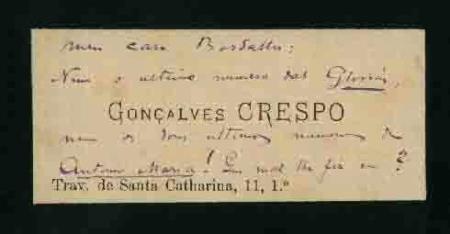 Meu caro Bordallo:
Nem o ultimo numero das Glorias,
GONÇALVES CRESPO
nem os dous ultimos numeros de
Antonio Maria! Que mal lhe fiz eu?
Trav. de Santa Catharina, 11, 1.º